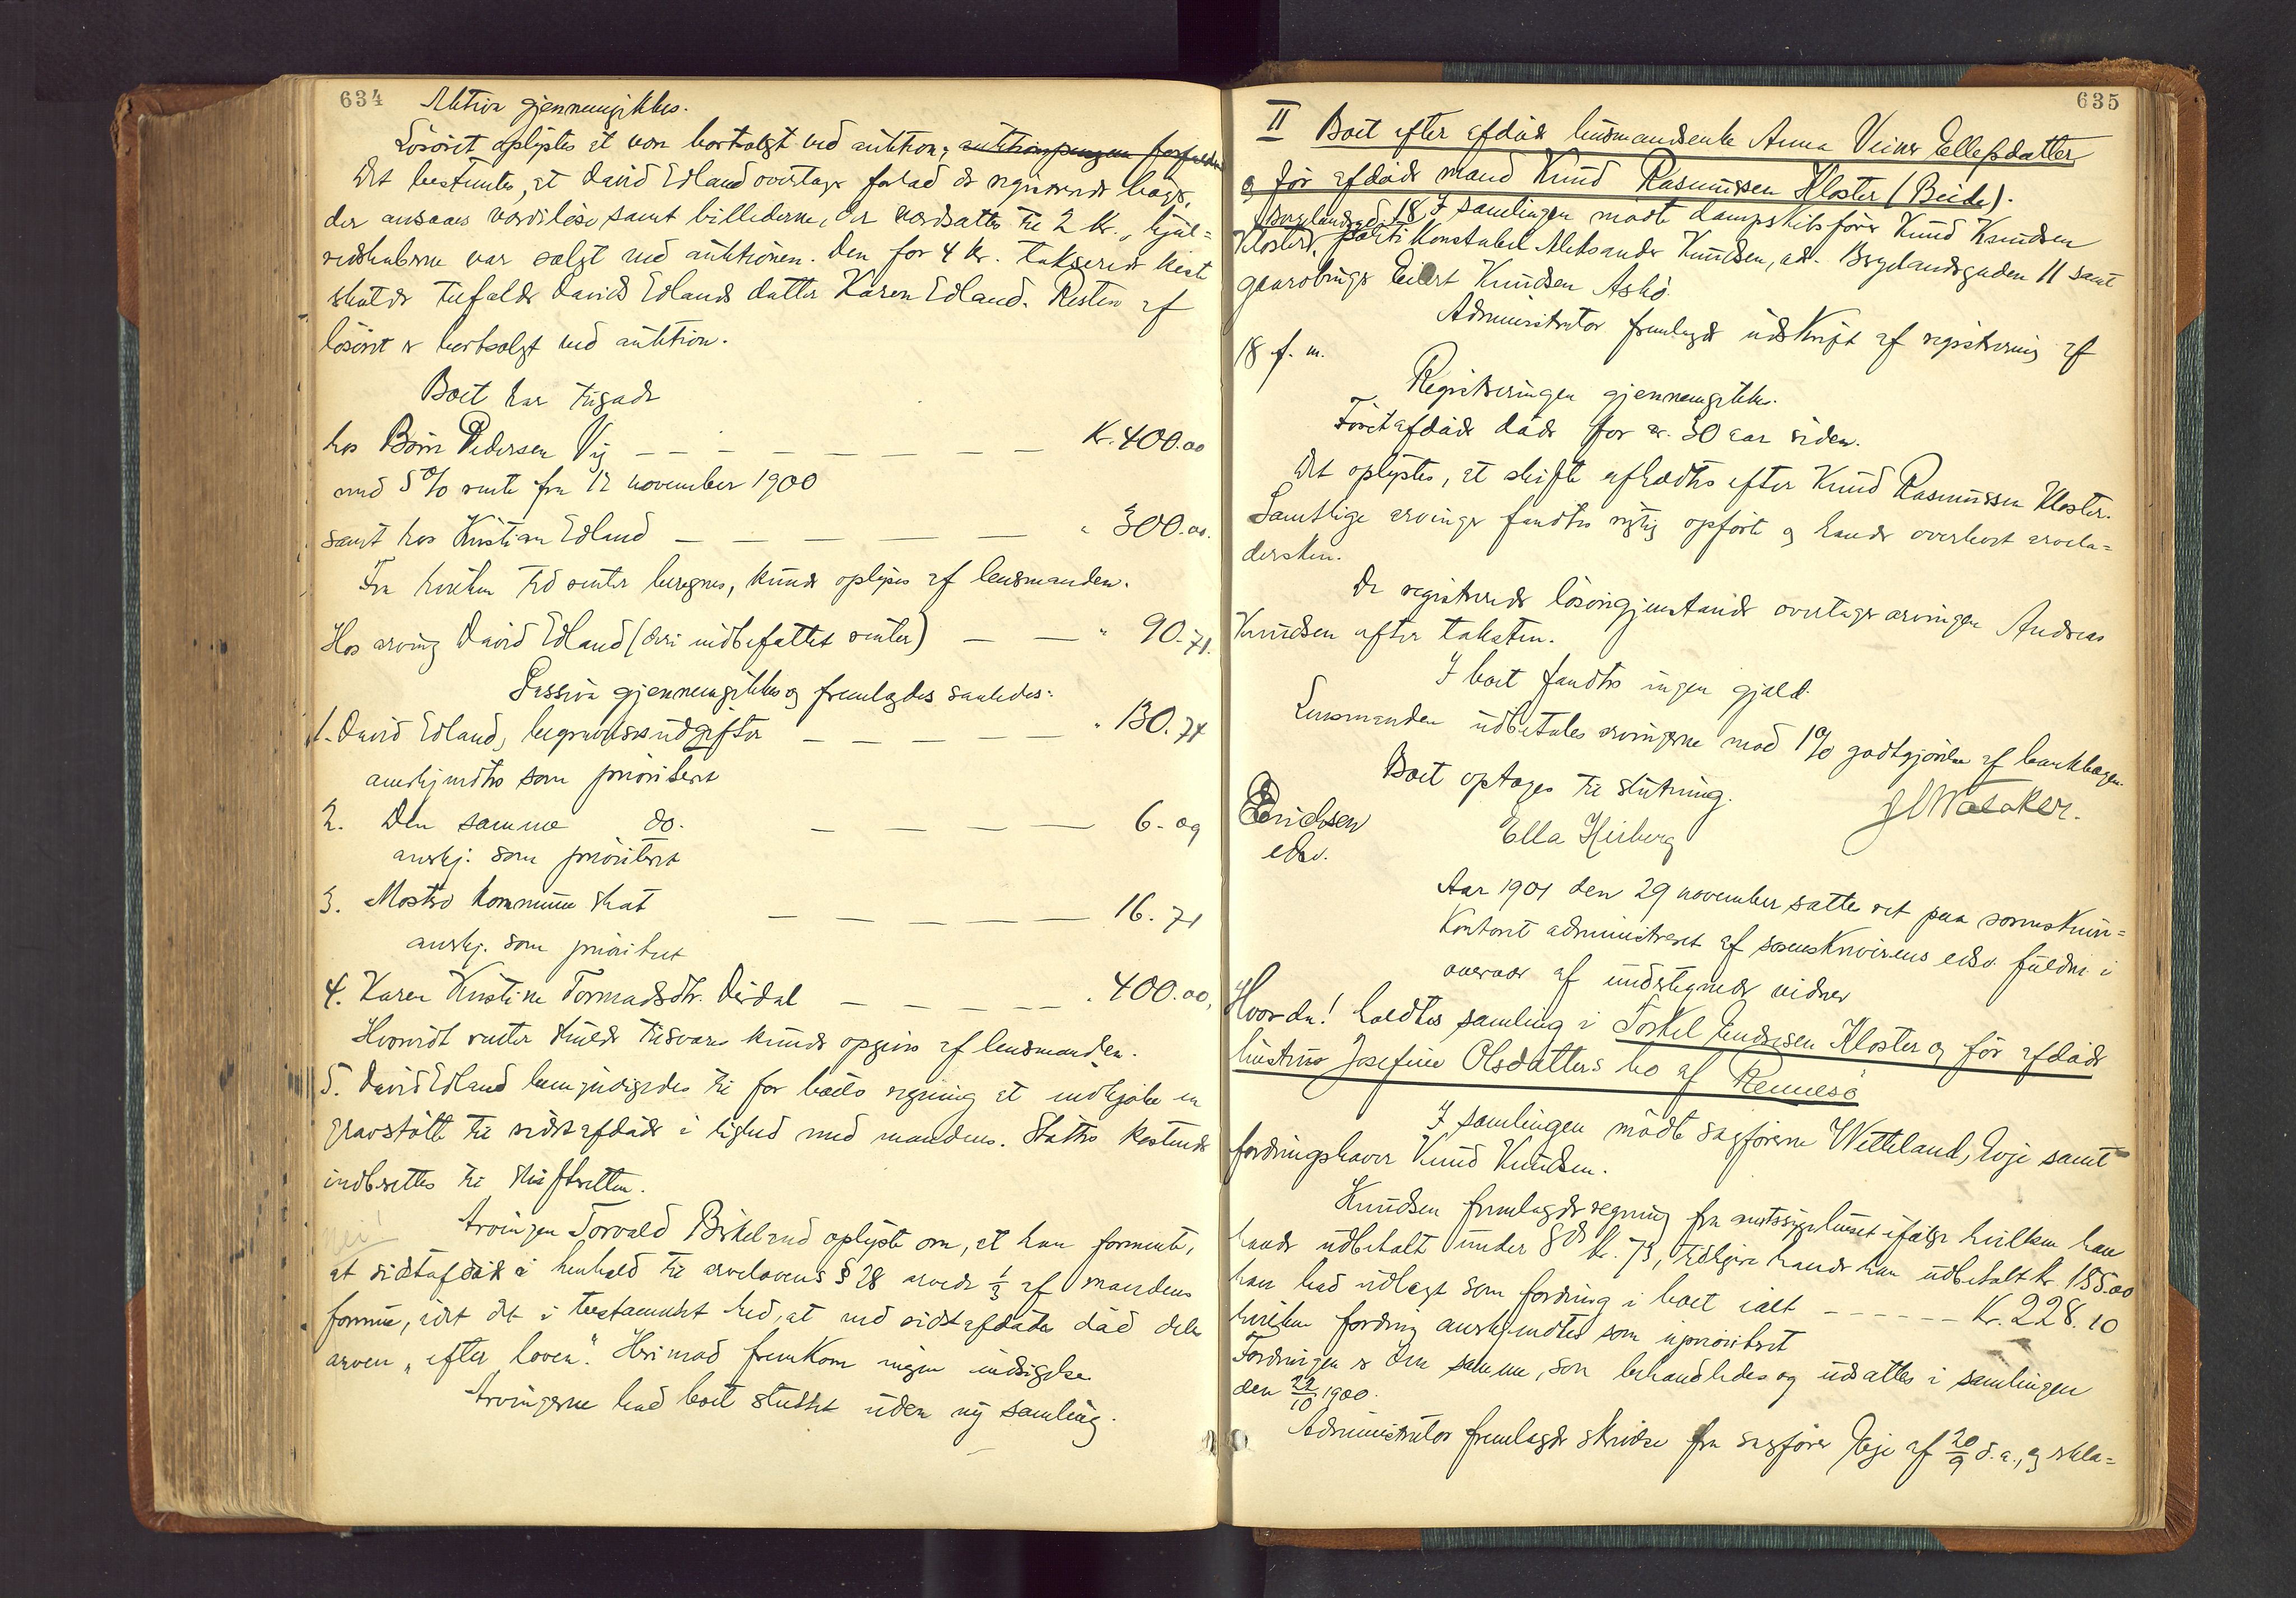 634
Aktiva gjennemgikkes.
Løsøret oplystes at være bortsolgt ved auktion; auktionspengene forfalder
Det bestemtes, at David Edland overtager forlad de registrerede bøger,
der ansaaes værdiløse samt billederne, der værdsattes til 2 kr.,
redskaberne var solgt ved auktionen. Den for 4 kr. takserede kiste
skulde tilfalde Davids Edlands datter Karen Edland. Resten af
løsøret er bortsolgt ved auktion.
Boet har tilgode
hos Børre Pedersen Vig – – – – – – – Kr. 400.00
med 5 % rente fra 12 november 1900
samt hos Kristian Edland – – – – – – " 300.00.
Fra hvilken tid renter beregnes, kunde oplyses af lensmanden.
Hos arving David Edland (deri indbefattet renter) – – " 90.71.
Passiva gjennemgikkes og fremlagdes saaledes:
1. David Edland, begravelsesudgifter – – – – – " 130.74
anerkjendtes som prioritert
2. Den samme do. – – – – – 6.09
anerkj. som prioritert
3. Mosterø kommune skat – – – – – – 16.71
anerkj. som prioritert
4. Karen Kristine Tormodsdtr. Dirdal – – – – " 400.00,
Hvorvidt renter skulde tilsvares kunde opgives af lensmanden.
5. David Edland bemyndigedes til for boets regning at indkjøbe en
gravstøtte til sidstafdøde i lighed med mandens. Støttes kostende
indberettes til skifteretten.
nei!
Arvingen Torvald Birkeland oplyste om, at han formente,
at sidstafdøde i henhold til arvelovens § 28 arvede 1/3 af mandens
formue, idet det i testamentet hed, at ved sidstafdødes død deles
arven „efter loven“. Herimod fremkom ingen indsigelse.
Arvingerne bad boet sluttet uden ny samling.
635
II Boet efter afdøde husmandsenke Anna Veiner Ellefsdatter
og før afdøde mand Knud Rasmussen Kloster (Beide).
18 I samlingen mødte dampskibsfører Knud Knudsen
Kloster, politikonstabel Aleksander Knudsen, adr. Bryelandsgaden 11 samt
gaardbruger Eilert Knudsen Askø.
Administrator fremlagde udskrift af registrering af
18 f. m.
Registreringen gjennemgikkes.
Førstafdøde døde for ca. 30 aar siden.
Det oplystes, at skifte afholdtes efter Knud Rasmussen Kloster.
Samtlige arvinger fandtes rigtig opført og havde overlevet arvela-
dersken.
De registrerede løsøregjenstande overtages arvingen Andreas
Knudsen efter taksten.
I boet fandtes ingen gjæld.
Lensmanden udbetales arvingerne mod 1% godtgjørelse af bankbogen.
Boet optages til slutning.
Erichsen
edsv.
Ella Hirberg
Aar 1901 den 29 november sattes ret paa sorenskriver-
kontoret administreret af sorenskriverens edsv. fuldm. i
overvær af undertegnede vidner
Hvorda! holdtes samling i Torkel Endresen Kloster og før afdøde
hustrus Josefine Olsdatters bo af Rennesø
I samlingen mødte sagførerne Wetteland, Eeje samt
fordringshaver Knud Knudsen.
Knudsen fremlagde regning fra amtssygehuset ifølge hvilken han
havde udbetalt under 8 ds kr. 73, tidligere havde han udbetalt kr. 155.00
han bad udlagt som fordring i boet ialt – – – – – Kr. 228.10
hvilken fordring anerkjendtes som uprioritert
Fordringen er den samme, som behandledes og udsattes i samlingen
den 22/10 1900.
Administrator fremlagde skrivelse fra sagfører Eeje af 20/9 d. a., og rekla-